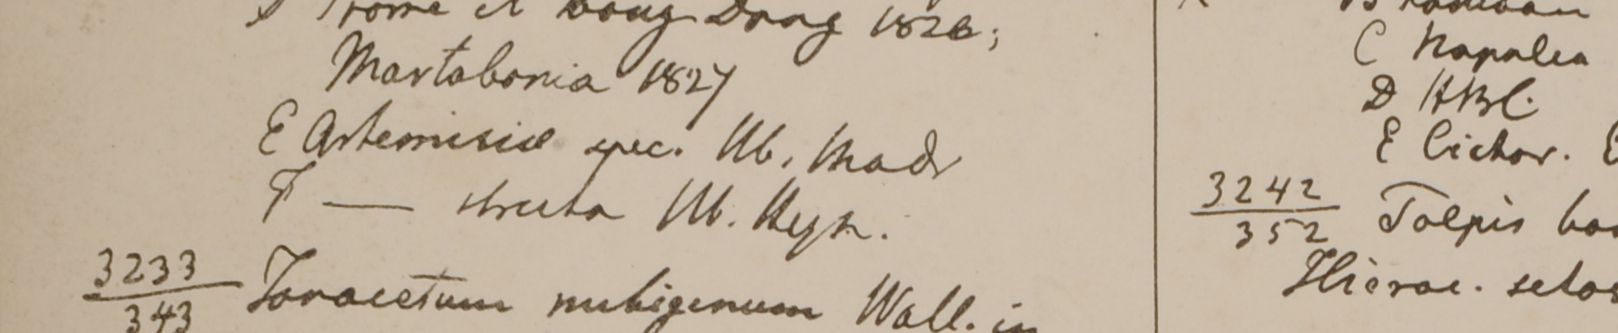 Prome et Taong Dong 1826;
Martabania 1827
E Artemisiæ spec. Hb. Madr
F — stricta Hb. Heyn.
3233
343
Tanacetum nubigenum Wall. in
C Napalea
D HBC.
E Cichor.
3242
352
Tolpis
Hierac. setos